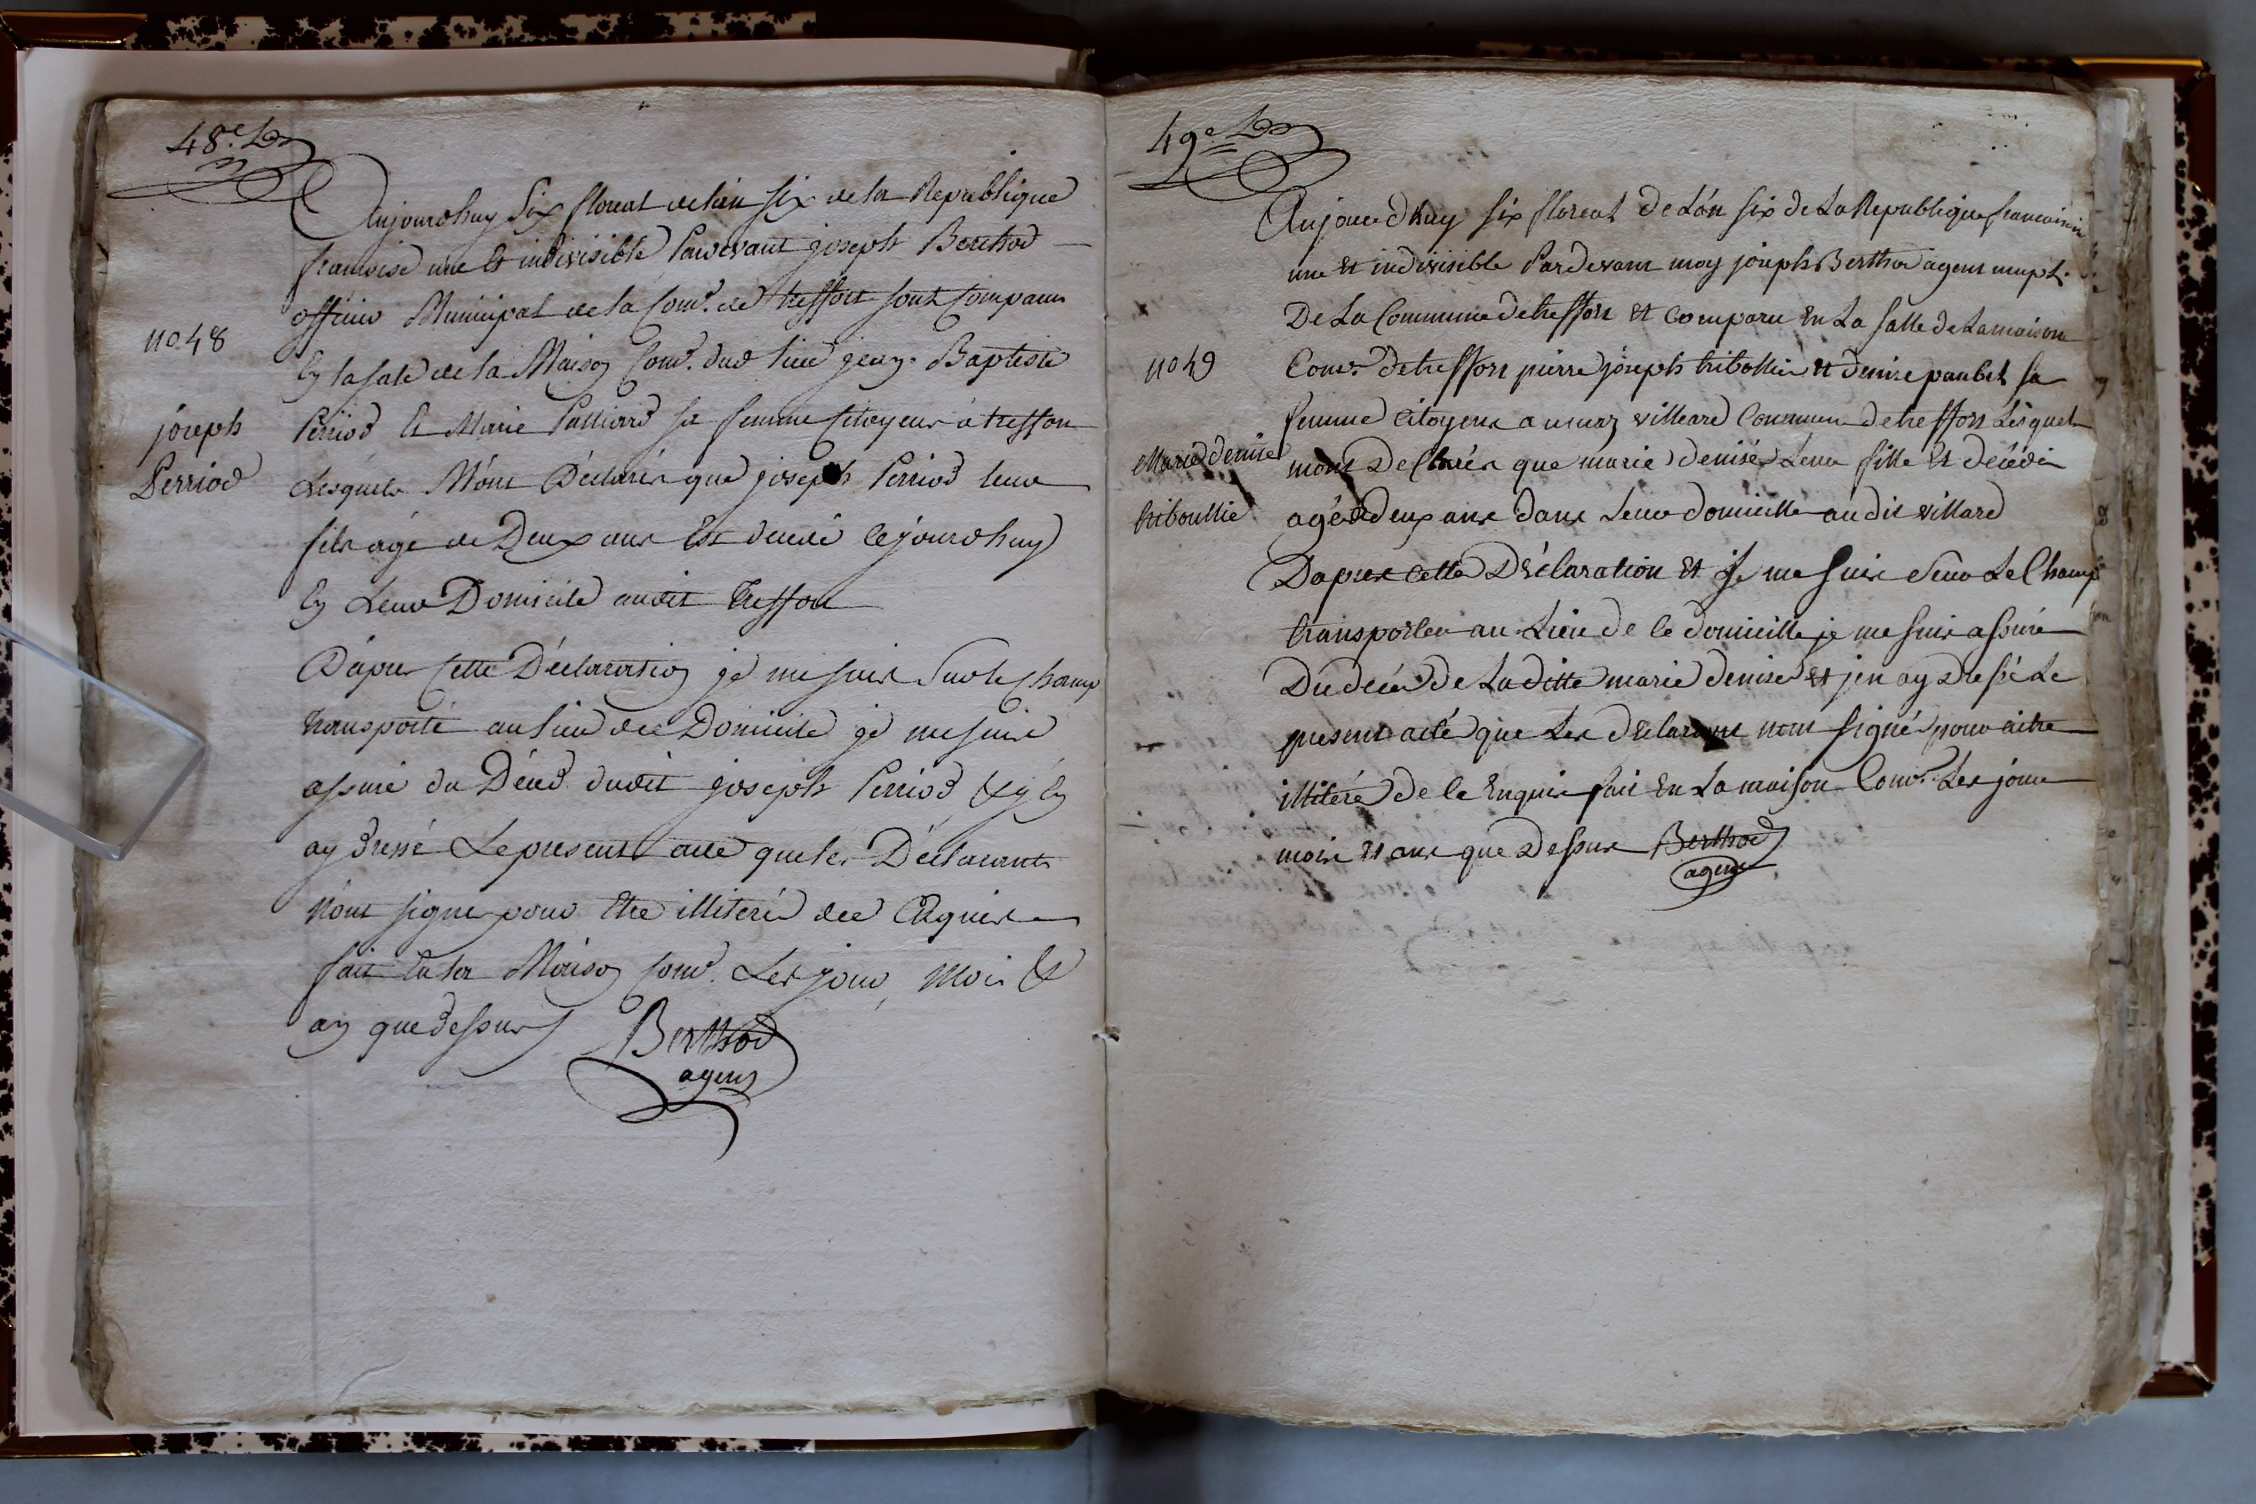 48e. Ler
no. 48
joseph
Perriod
Aujourdhuy Six floreal de lan six de la Republique
francoise une & indivisible Pardevant joseph Berthod
officier Municipal de la Com.e de treffort sont Comparus
En la sale de la Maison Com.e dud lieu jean Baptiste
Perriod & Marie Palliard sa femme Citoyens a treffort
Lesquels M'ont Déclarés que joseph Perriod leur
fils agé de Deux ans Est decedé cejourdhuy
En Leur Domicile audit treffort
D'apres Cette Déclaration je me suis Surle Champ
transporté au lieu de Domicile je me suis
assuré du Déced dudit joseph Perriod & j'en
ay dressé Lepresent acte queles Déclarants
n'ont signe pour Etre illiteré de Enquis
fait En la Maison Com.e Les jour, Mois &
an quedessus Berthod
agent
49e Ler
no 49
Marie denise
triboullie
Aujourdhuy six floreal de Lán six de La Republique francoise
une et indivisible Pardevant moy joseph Berthod agent mupl.
De La Commune de treffort et Comparu En La salle de La maison
Com.e de treffort pierre joseph tribollier et denise paubel sa
femme Citoyens a villeard Commune de treffort Lesquels
mont Declarés que marie denise Leur fille Et décédée
agée de deux ans dans Leur domicille au dit villard
Dapres cette Déclaration et je me suis Sur Le Champ
transporter au Lieu de ce domicille je me suis assuré
Du decés de La ditte marie denise et jen ay Dressé Le
present acte que Les declarant nont signé pour aitre
illiteré de ce Enquis fait En La maison Com.e Les jour
mois et ans que Dessus Berthod
agent